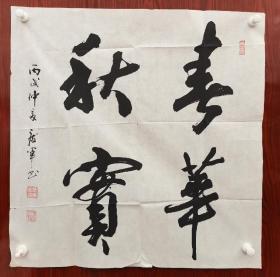 春華
秋實
丙戌仲夏
書